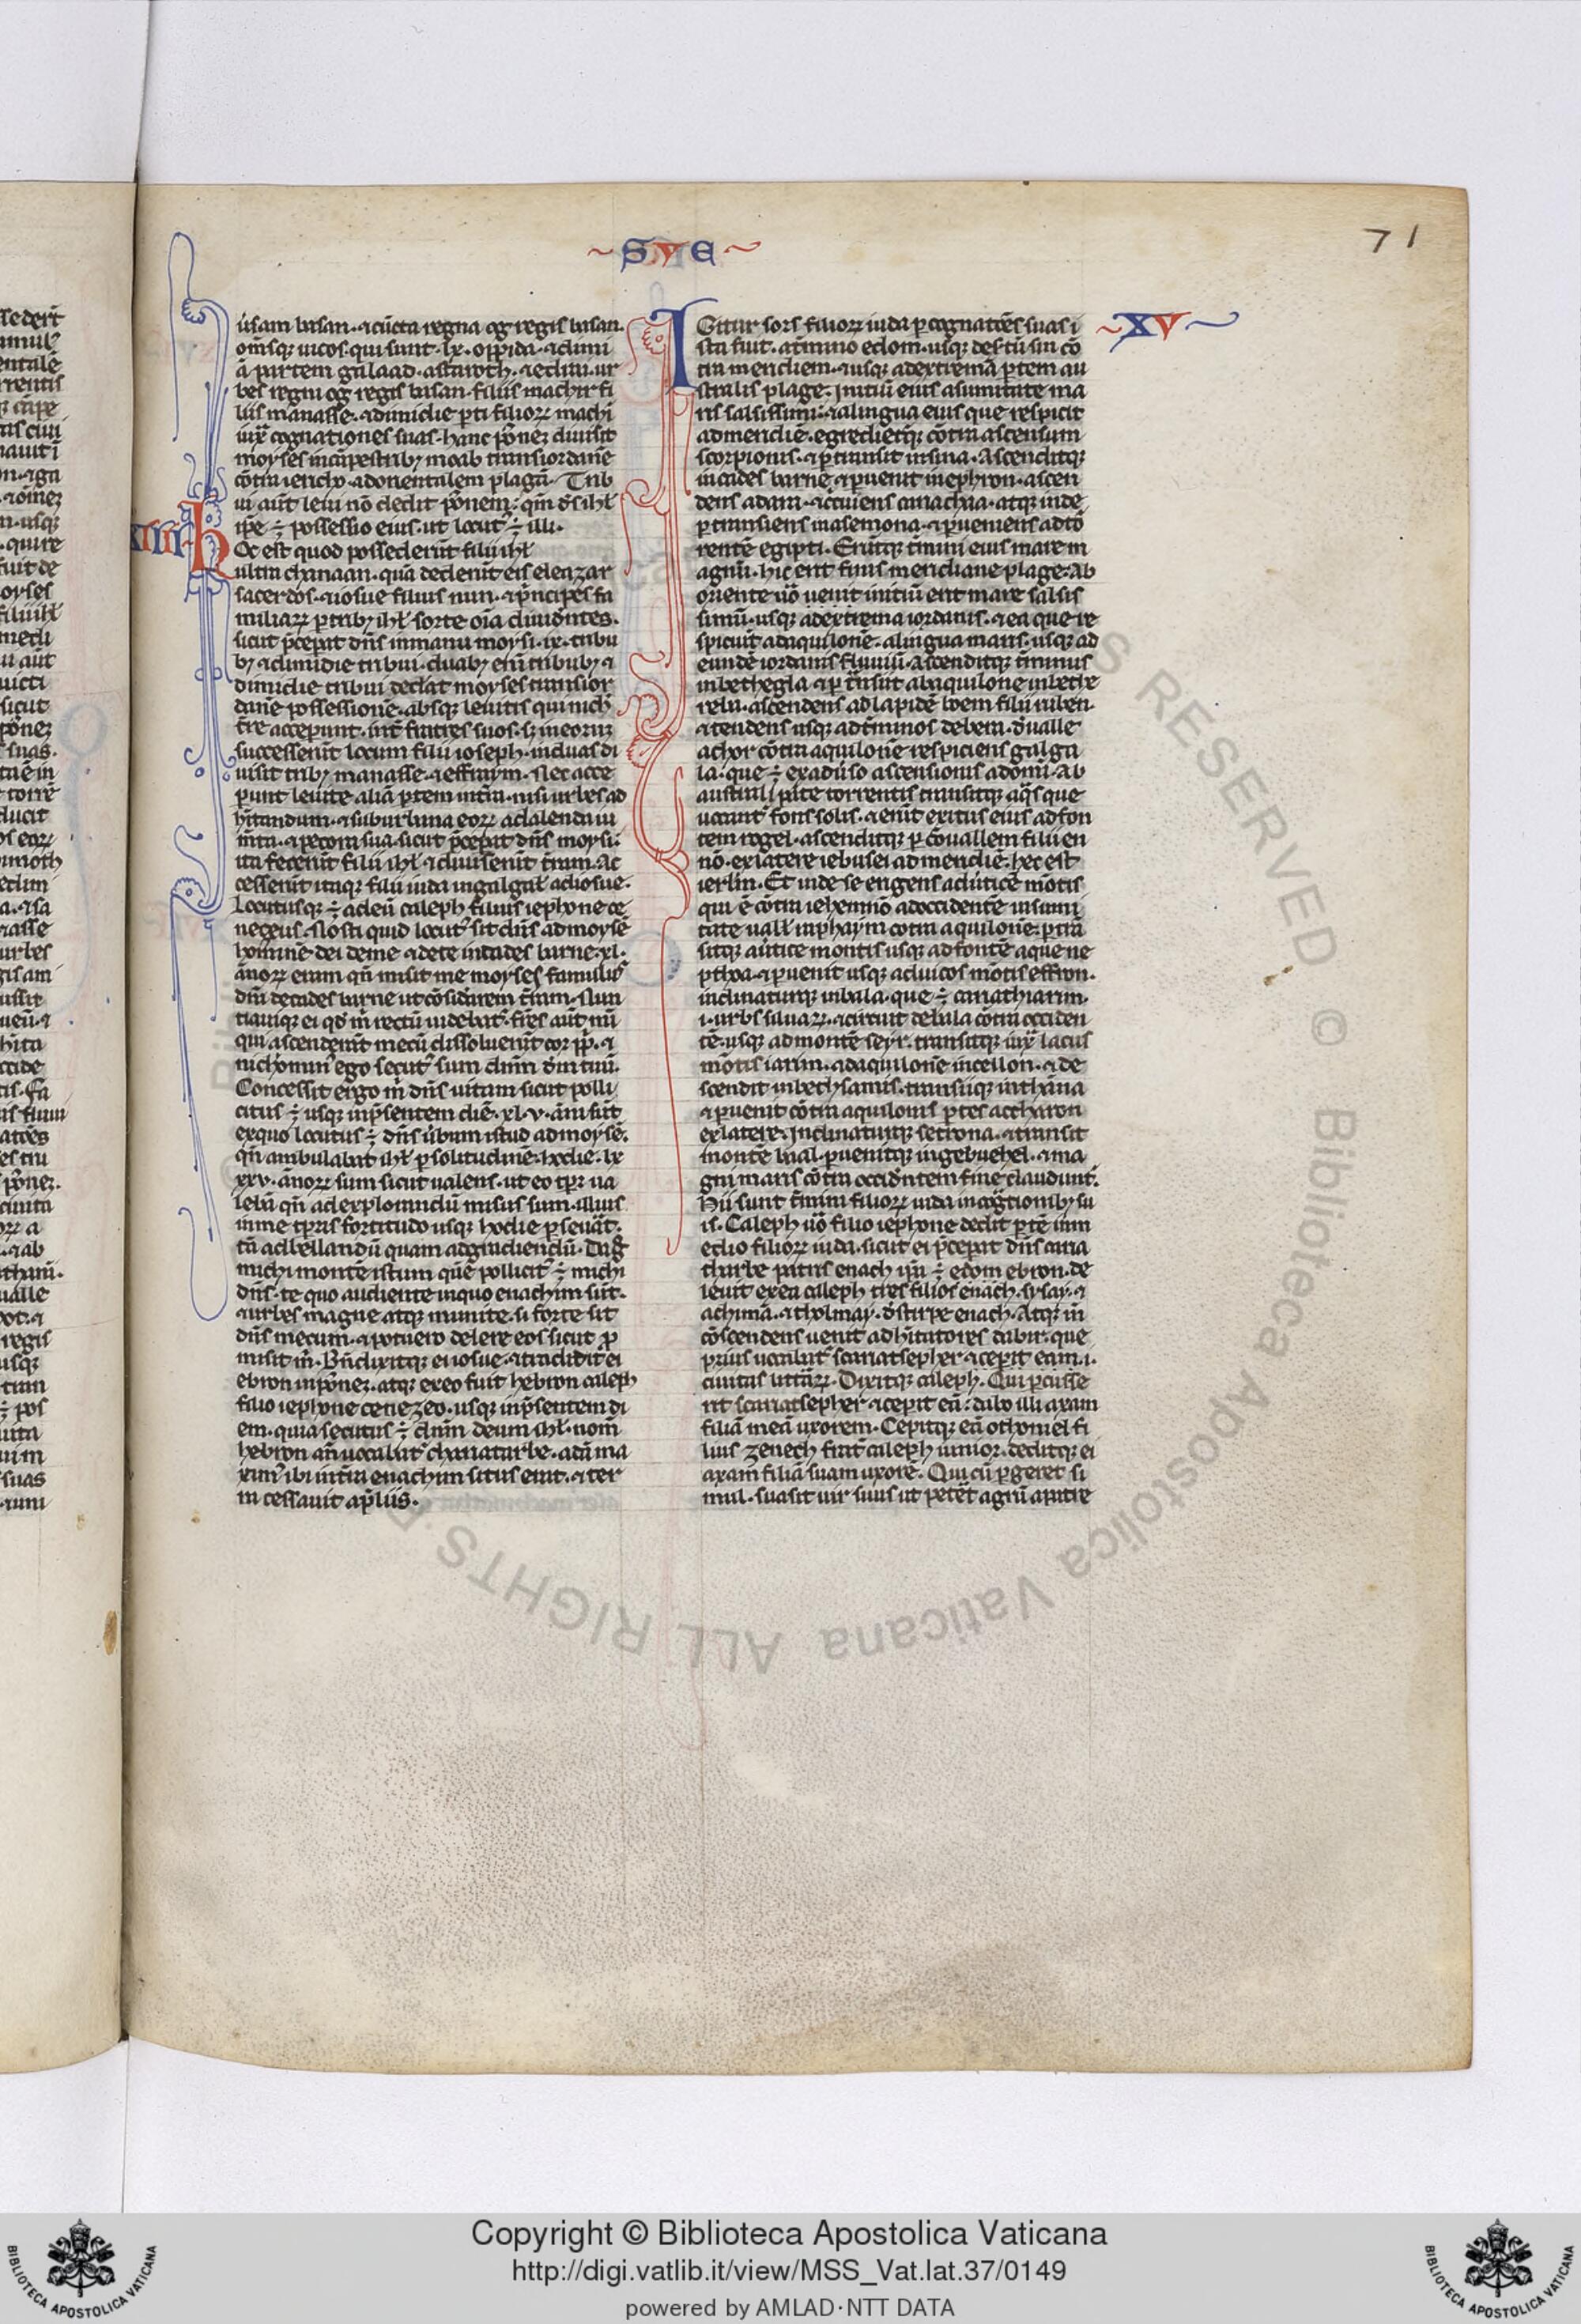 ~ S V E ~
71
uersam basan. ⁊ cūcta regna og regis basan.
om̄sq; uicos qui sunt. lx. oppida. ⁊ dimi
ā partem galaad. astaroth. ⁊ edrai. ur
bes regni og regis basan. filiis machir fi
liis manasse. ⁊ dimidie ꝑti filioꝝ machi
iux͛ cognationes suas. hanc poss̄nez diuisit
moyses in cāpestrib; moab trans iordanē
cōt͛a iericho ad orientalem plagā. Trib
ui aūt leui nō dedit poss̄nem. qm̄ d̄s isrl̄
ip̄e ÷ possessio eius. ut locut᷒ ÷ illi.
XIIII
Hoc est quod possederūt filii isrl̄
in t͛ra chanaan. quā dederūt eis eleazar
sacerdos. ⁊ iosue filius nun. ⁊ p̄ncipes fa
miliaꝝ ꝑ trib; isrl̄. sorte oīa diuidētes.
sicut p̄cepat dn̄s in manu moysi. ix. tribu
b; ⁊ dimidie tribui. duab; eni tribub; ⁊
dimidie tribui dederat moyses trans ior
danē possessionē. absq; leuitis qui nich̄
t͛re acceperunt. int͛ fratres suos. s; in eorum
successerūt locum filii ioseph. in duas di
uisi trib; manasse. ⁊ effraym. Nec acce
perunt leuite aliā ꝑtem in t͛ra. nisi urbes ad
hītandum. ⁊ suburbana eoꝝ ad alenda iu
m̄ta. ⁊ pecora sua. sicut p̄cepat dn̄s moysi.
ita fecerūt filii isrl̄. ⁊ diuiserūt t͛ram. Ac
cesserūt itaq; filii iuda in galgal ad iosue.
Locutusq; ÷ ad eū caleph filius iephone ce
nezeus. Nosti quid locut᷒ sit dn̄s ad moysē
hominē dei de me ⁊ de te in cades barne. xl.
annoꝝ eram qn̄ misit me moyses famulus
dn̄i de cades barne ut cōsiderarem t͛ram. Nun
tiauiq; ei qd̄ m̄ rectū uidebat᷒. fr̄es aūt mī
qui ascenderūt mecū dissoluerūt cor pp̄l. ⁊
nichominꝰ ego secut᷒ sum dn̄m dm̄ meū.
Concessit ergo m̄ dn̄s uitam sicut polli
citus ÷ usq; in p̄sentem diē. xl. v. āni sūt
ex quo locutus ÷ dn̄s u͛bum istud ad moysē.
qn̄ ambulabat isrl̄ ꝑ solitudinē. hodie. lx
xxv. annoꝝ sum sicut ualens. ut eo tp͛e ua
lebā qn̄ ad explorandū misus sum. illius
in me tp͛is fortitudo usq; hodie ꝑseuerat.
tā ad bellandū quam ad gradiendū. Da g̊
michi montē istum quē pollicit᷒ ÷ michi
dn̄s. te quo audiente in quo enachim sūt.
⁊ urbes magne atq; munite. si forte sit
dn̄s mecum. ⁊ potuero delere eos sicut ꝓ
misit m̄. Bn̄dixitq; ei iosue. ⁊ tradidit ei
ebron in poss̄nez. atq; ex eo fuit hebron caleph
filio iephone cenezeo. usq; in p̄sentem di
em. quia secutus ÷ dn̄m deum isrl̄. nom̄
hebron an̄ uocabat᷒ chariatarbe. adā ma
ximꝰ ibi int͛ enachim situs erat. ⁊ ter
ra cessauit a p̄liis.
~ XV ~
IGitur sors filioꝝ iuda ꝑ cognatōes suas i
sta fuit. a t͛mino edom. usq; des͛tū sin cō
tra meridiem. ⁊ usq; ad extremā ꝑtem au
stralis plage. Initiū eius a sumitate ma
ris salsissimi. ⁊ a lingua eius que respicit
ad meridiē. egredieturq; cōt͛a ascensum
scorpionis. ⁊ ꝑtransit in sina. Ascenditq;
in cades barne ⁊ ꝑuenit in ephron. ascen
dens adara. ⁊ circuiens carachaa. atq; inde
ꝑtransiens in asemona. ⁊ ꝑueniens ad to
rentē egipti. Erūtq; t͛mini eius mare m
agnū. hic erit finis meridiane plage. Ab
oriente uō uenit initiū erit mare salsis
simū. usq; ad extrema iordanis. ⁊ ea que re
spiciūt ad aquilonē. a lingua maris. usq; ad
eundē iordanis fluuiū. Ascenditq; t͛minus
in bethegla. ⁊ ꝑ t͛nsit ab aquilone in bethe
rela. ascendens ad lapidē boem filii ruben.
⁊ tendens usq; ad t͛minos debera. de ualle
achor cōt͛a aquilonē respiciens galga
la. que ÷ ex aduerso ascensionis adomi. ab
australi parte torrentis transitq; aq̄s que
uocantur fons solis. ⁊ erūt exitus eius ad fon
tem rogel. ascenditq; ꝑ cōuallem filii en
nō. ex latere iebusei ad meridiē. hec est
ierlm̄. Et inde se erigens ad uerticē mōtis
qui ē cōt͛a iehennō ad occidentē in sumi
tate uall͛ raphaym cōtra aquilonē. ꝑtrā
sitq; a u͛tice montis usq; ad fontē aque ne
pthoa. ⁊ ꝑuenit usq; ad uicos mōtis effron.
inclinaturq; in bala. que ÷ cariathiarim.
.i. urbs siluaꝝ. ⁊ circuit de bala cōt͛a occiden
tē. usq; ad montē seyr. transitq; iux͛ latus
mōtis iarim. ad aquilonē in cellon. ⁊ de
scendit in bethsamis. transiitq; in thāna
⁊ ꝑuenit cōt͛a aquilonis ꝑtes accharon
ex latere. Inclinaturq; secrona. ⁊ transit
montē baal. ꝑuenitq; in gebnehel. ⁊ ma
gni maris cōt͛a occidentem fine claudunt᷒.
Hii sunt t͛mini filioꝝ iuda in cognationib; su
is. Caleph uō filio iephone dedit ꝑtē in m
edio filioꝝ iuda. sicut ei p̄cepat dn̄s caria
tharbe patris enach ip̄a ÷ edom ebron. de
leuit ex ea caleph tres filios enach. sysay. ⁊
achimā. ⁊ tholmay. de stirpe enach. Atq; in
cōscendens uenit ad hītatores dabir. que
prius uocabat᷒ scariatsepher ⁊ cepit eam. i.
ciuitas litt͛aꝝ. Dixitq; caleph. Qui ꝑcusse
rit scariatsepher ⁊ ceperit eā. dabo illi axam
filiā meā uxorem. Cepitq; eā othoniel fi
lius zenech frat͛ caleph iunior. deditq; ei
axam filiā suam uxorē. Qui cū ꝑgeret si
mul. suasit uir suus ut peteret agrū a patre
S RESERVED © Biblioteca Apostolica Vaticana ALL RIGHTS
Copyright © Biblioteca Apostolica Vaticana
http://digi.vatlib.it/view/MSS_Vat.lat.37/0149
powered by AMLAD·NTT DATA
BIBLIOTECA APOSTOLICA VATICANA
BIBLIOTECA APOSTOLICA VATICANA